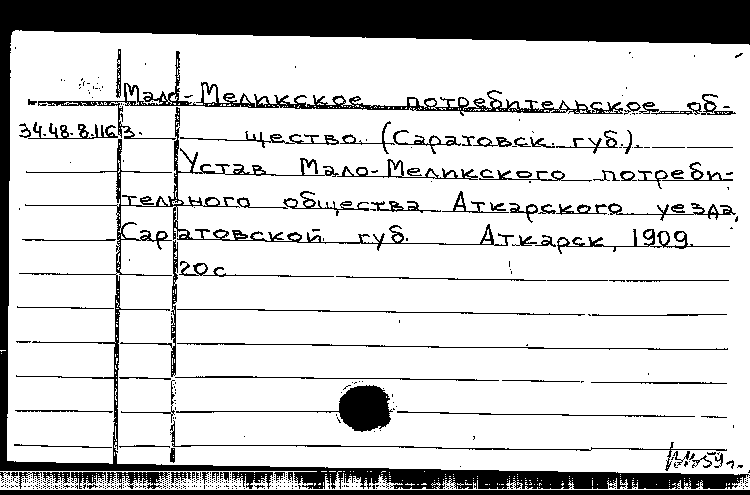 Мало-Меликское потребительское об-
34.48.8.1163. щество. (Саратовск. губ.).
Устав Мало-Меликского потреби-
тельного общества Аткарского уезда,
Саратовской губ. Аткарск, 1909.
20с